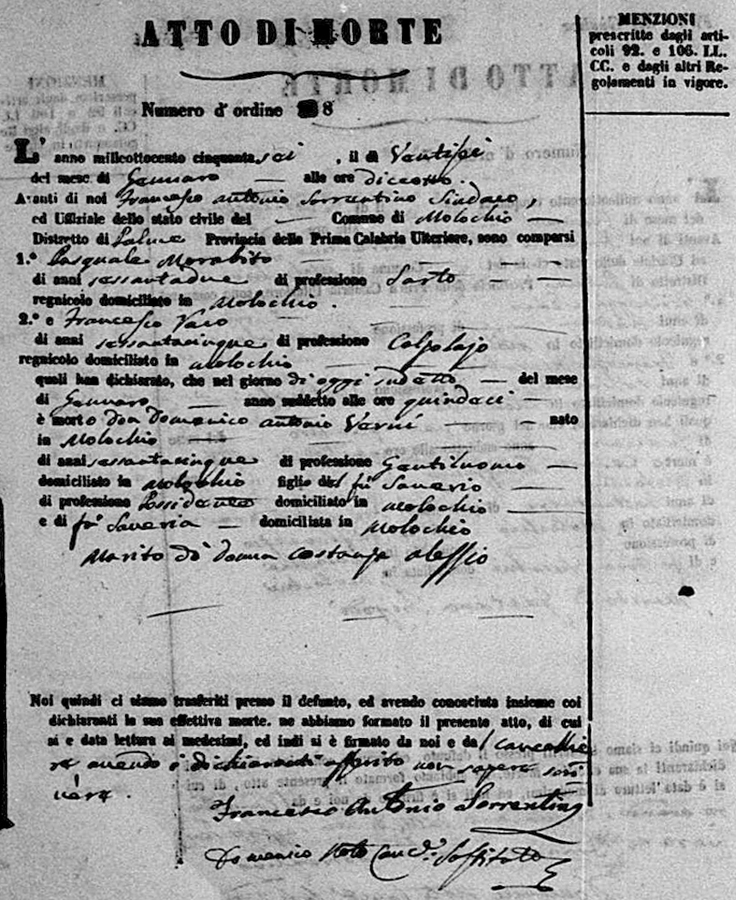 ATTO DI MORTE
Numero d' ordine 8
L' anno millottocento cinquantasei, il di Ventisei
del mese di Gennaro — alle ore dieciotto
Avanti di noi Francesco Antonio Sorrentino Sindaco,
ed Uffiziale dello stato civile del — Comune di Molochio —
Distretto di Palme Provincia della Prima Calabria Ulteriore, sono comparsi
1.° Pasquale Morabito —
di anni sessantadue di professione Sarto —
regnicolo domiciliato in Molochio.
2.° e Francesco
di anni sessantacinque di professione
regnicolo domiciliato in Molochio —
quali han dichiarato, che nel giorno di oggi sudetto — del mese
di Gennaro — anno suddetto alle ore quindeci —
è morto don Domenico Antonio Verni — nato
in Molochio —
di anni sessantacinque di professione Gentiluomo —
domiciliato in Molochio figlio del fù Saverio —
di professione Possidente domiciliato in Molochio —
e di fù Saveria — domiciliata in Molochio
Marito di donna Costanza Alessio
Noi quindi ci siamo trasferiti presso il defunto, ed avendo conosciuta insieme coi
dichiaranti la sua effettiva morte. ne abbiamo formato il presente atto, di cui
si e data lettura ai medesimi, ed indi si è firmato da noi e dal cancellie
re avendo i dichiaranti asserito non sapere scri
vere.
Francesco Antonio Sorrentino
Domenico
MENZIONI
prescritte dagli arti-
coli 92. e 106. LL.
CC. e dagli altri Re-
golamenti in vigore.